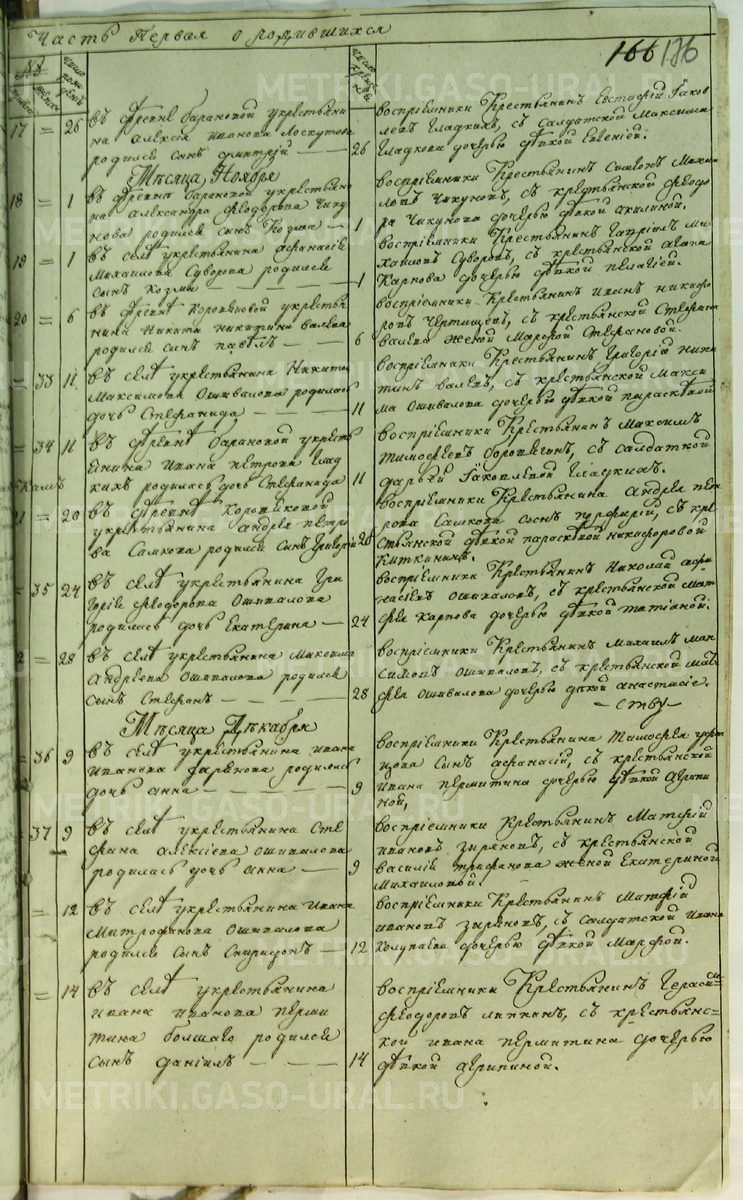 Часть Первая о родившихся
166 176
17 = 26 въ деревне барановой укрестьяни
на алексія иванова Лоскутова
родился сынъ димитрій — 26
воспріемники Крестьянинъ Евстафій Iаков
левъ Гладкихъ, съ салдатской Максима
Гладкова дочерью девкой Евгеніей.
Месяца Ноября
18 = 1 въ деревне барановой укрестьяни
на александра феодорова Чику
нова родился сынъ Козма — 1
воспріемники Крестьянинъ Симеонъ Михаи
ловъ Чикуновъ, съ крестьянской феодо
ра Чикунова дочерью девкой акилиной.
19 = 1 въ селе укрестьянина афанасія
Михаилова Суворова родился
сынъ козма — 1
воспріемники Крестьянинъ Гавріилъ Ми
хаиловъ Суворовъ, съ крестьянской
Карпова дочерью девкой пелагіей.
20 = 6 въ деревне Коровяковой укрестья
нина Никита никитина валова
родился сынъ павелъ — 6
воспріемники Крестьянинъ Иванъ никифо
ровъ Чертищевъ, съ крестьянской Стефана
валова женой Марфой Стефановой.
= 33 11 въ селе укрестьянина Никиты
Максимова Ошивалова родилась
дочь Стефанида — 11
воспріемники Крестьянинъ Григорій ники
тинъ валовъ, съ крестьянской Макси
ма Ошивалова дочерью девкой параскевой
= 34 11 въ деревне барановой укресть
янина ивана петрова Глад
кихъ родилась дочь Стефанида 11
воспріемники Крестьянинъ Максимъ
Тимофеевъ с салдаткой
дарьей Iаковлевой Гладкихъ.
21 = 20 въ деревне Коровяковой
укрестьянина андрея петро
ва Сапкова родился сынъ Григорій 20
воспріемники Крестьянина андрея пет
рова Сапкова сынъ порфирій, съ кре
стьянской девкой параскевой никифоровой
киткиныхъ.
= 35 24 въ селе укрестьянина Гри
горія феодорова Ошивалова
родилась дочь Екатерина — 24
воспріемники Крестьянинъ Николай афа
насіевъ ошиваловъ, съ крестьянской Мат
фея карпова дочерью девкой татіаной.
2 = 28 въ селе укрестьянина Максима
андреева Ошивалова родился
сынъ Стефанъ — 28
воспріемники Крестьянинъ Михаилъ мак
симовъ ошиваловъ, съ крестьянской мат
фея ошивалова дочерью девкой анастасіе.
Месяца Декабря
= 36 9 въ селе укрестьянина ивана
иванова родилась
дочь анна — 9
воспріемники Крестьянина Тимофея
сынъ афанасій, съ крестьянской
ивана пермитина дочерью девкой агрипи
ной,
37 9 въ селе укрестьянина Сте
фана алексіева ошивалова
родилась дочь анна — 9
воспріемники Крестьянинъ Матфій
ивановъ зыряновъ, съ крестьянской
василія трифанова женой Екатериной
Михаиловой.
= 12 въ селе укрестьянина ивана
Митрофанова Ошивалова
родился сынъ Спиридонъ — 12
воспріемники Крестьянинъ Матфій
ивановъ зыряновъ, съ Салдатской ивана
колупаева дочерью девкой Марфой.
= 14 въ селе укрестьянина
ивана иванова перми
тина болшаго родился
сынъ даніилъ — 14
воспріемники Крестьянинъ Герасим
феодоровъ липкинъ, съ крестьянс=
кой ивана пермитина дочерью
девкой агрипиной.
METRIKI.GASO-URAL.RU